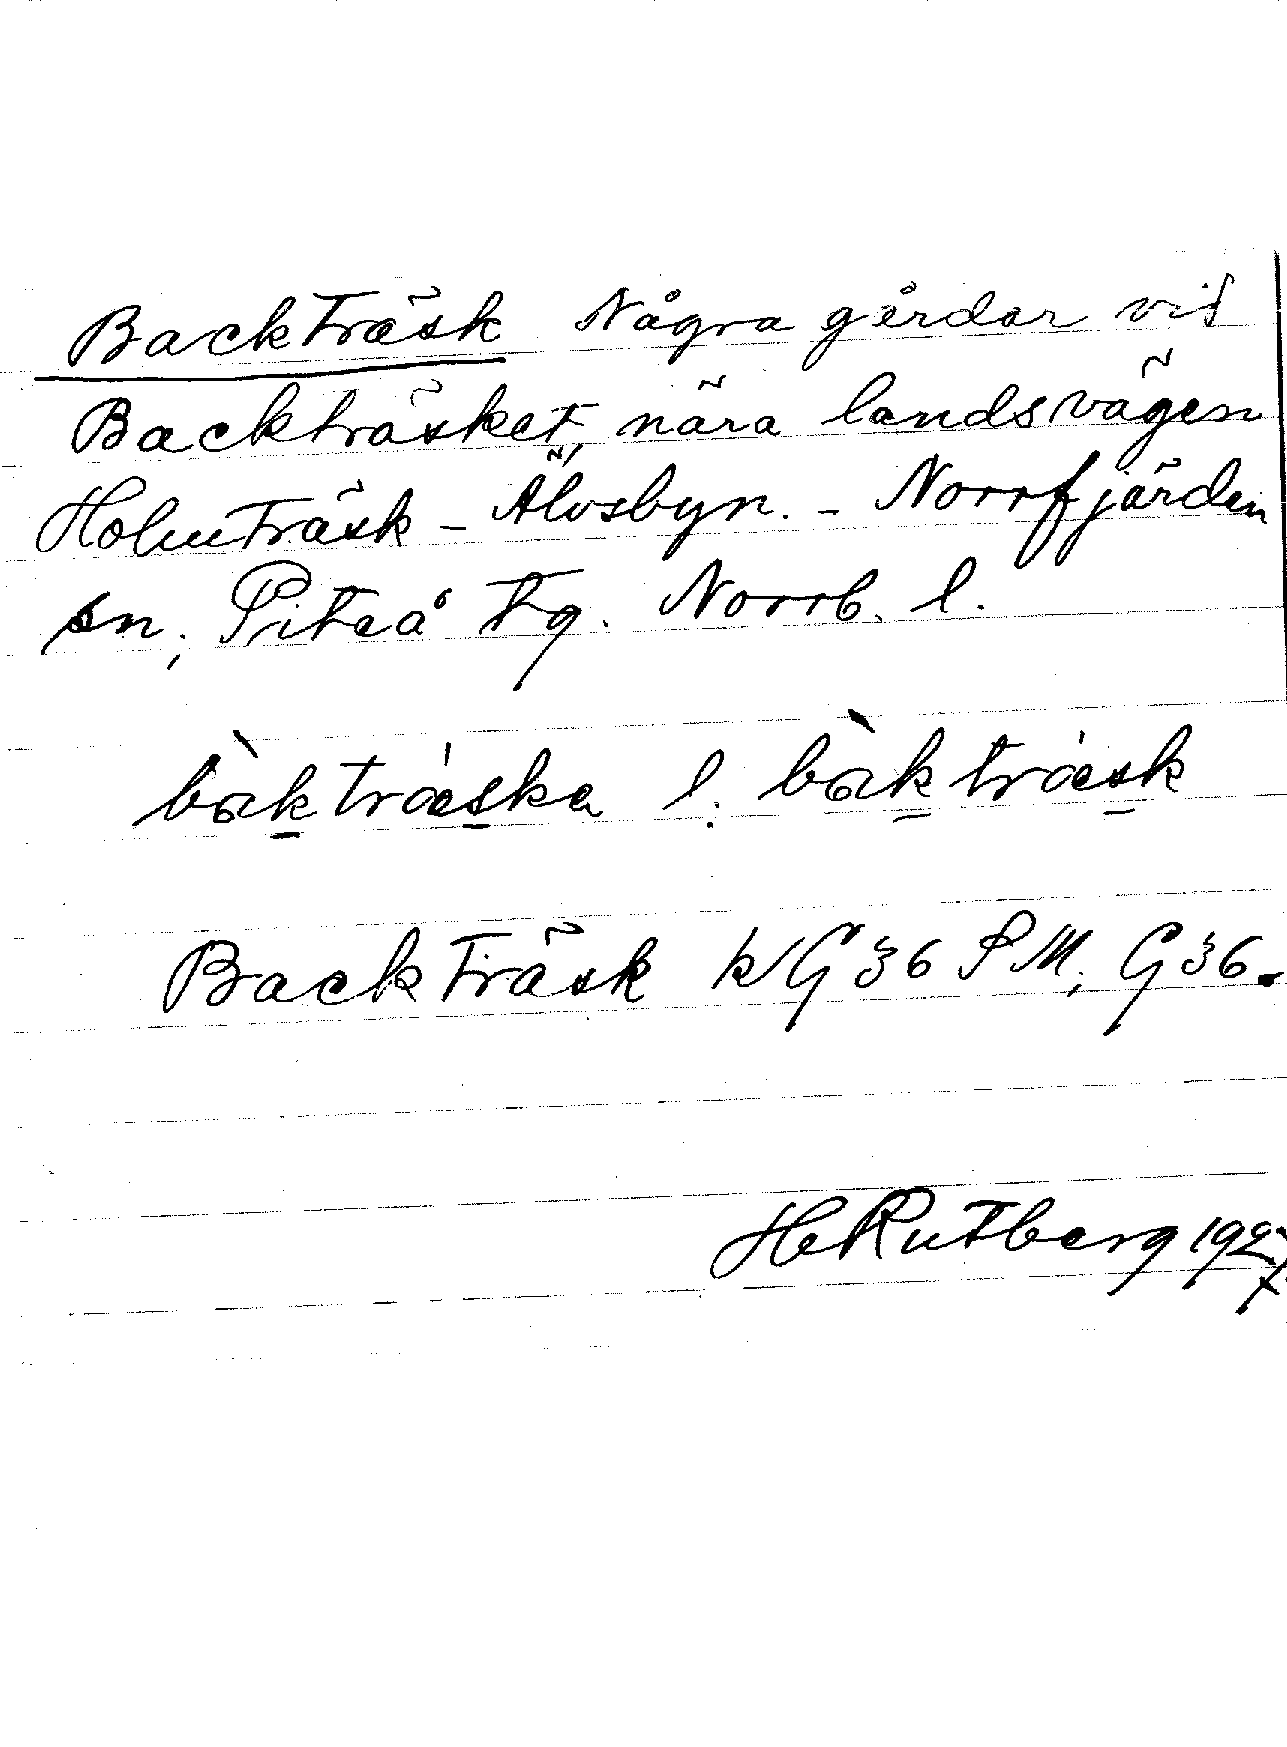 Backträsk Några gårdar vid
Backträsket, nära landsvägen
Holmträsk - Älvsbyn. - Norrfjärden
sn, Piteå tg. Norrb. l.
bàktráska l. bàktræsk
Backträsk k G 36 S M, G 36.
H Rutberg 1927